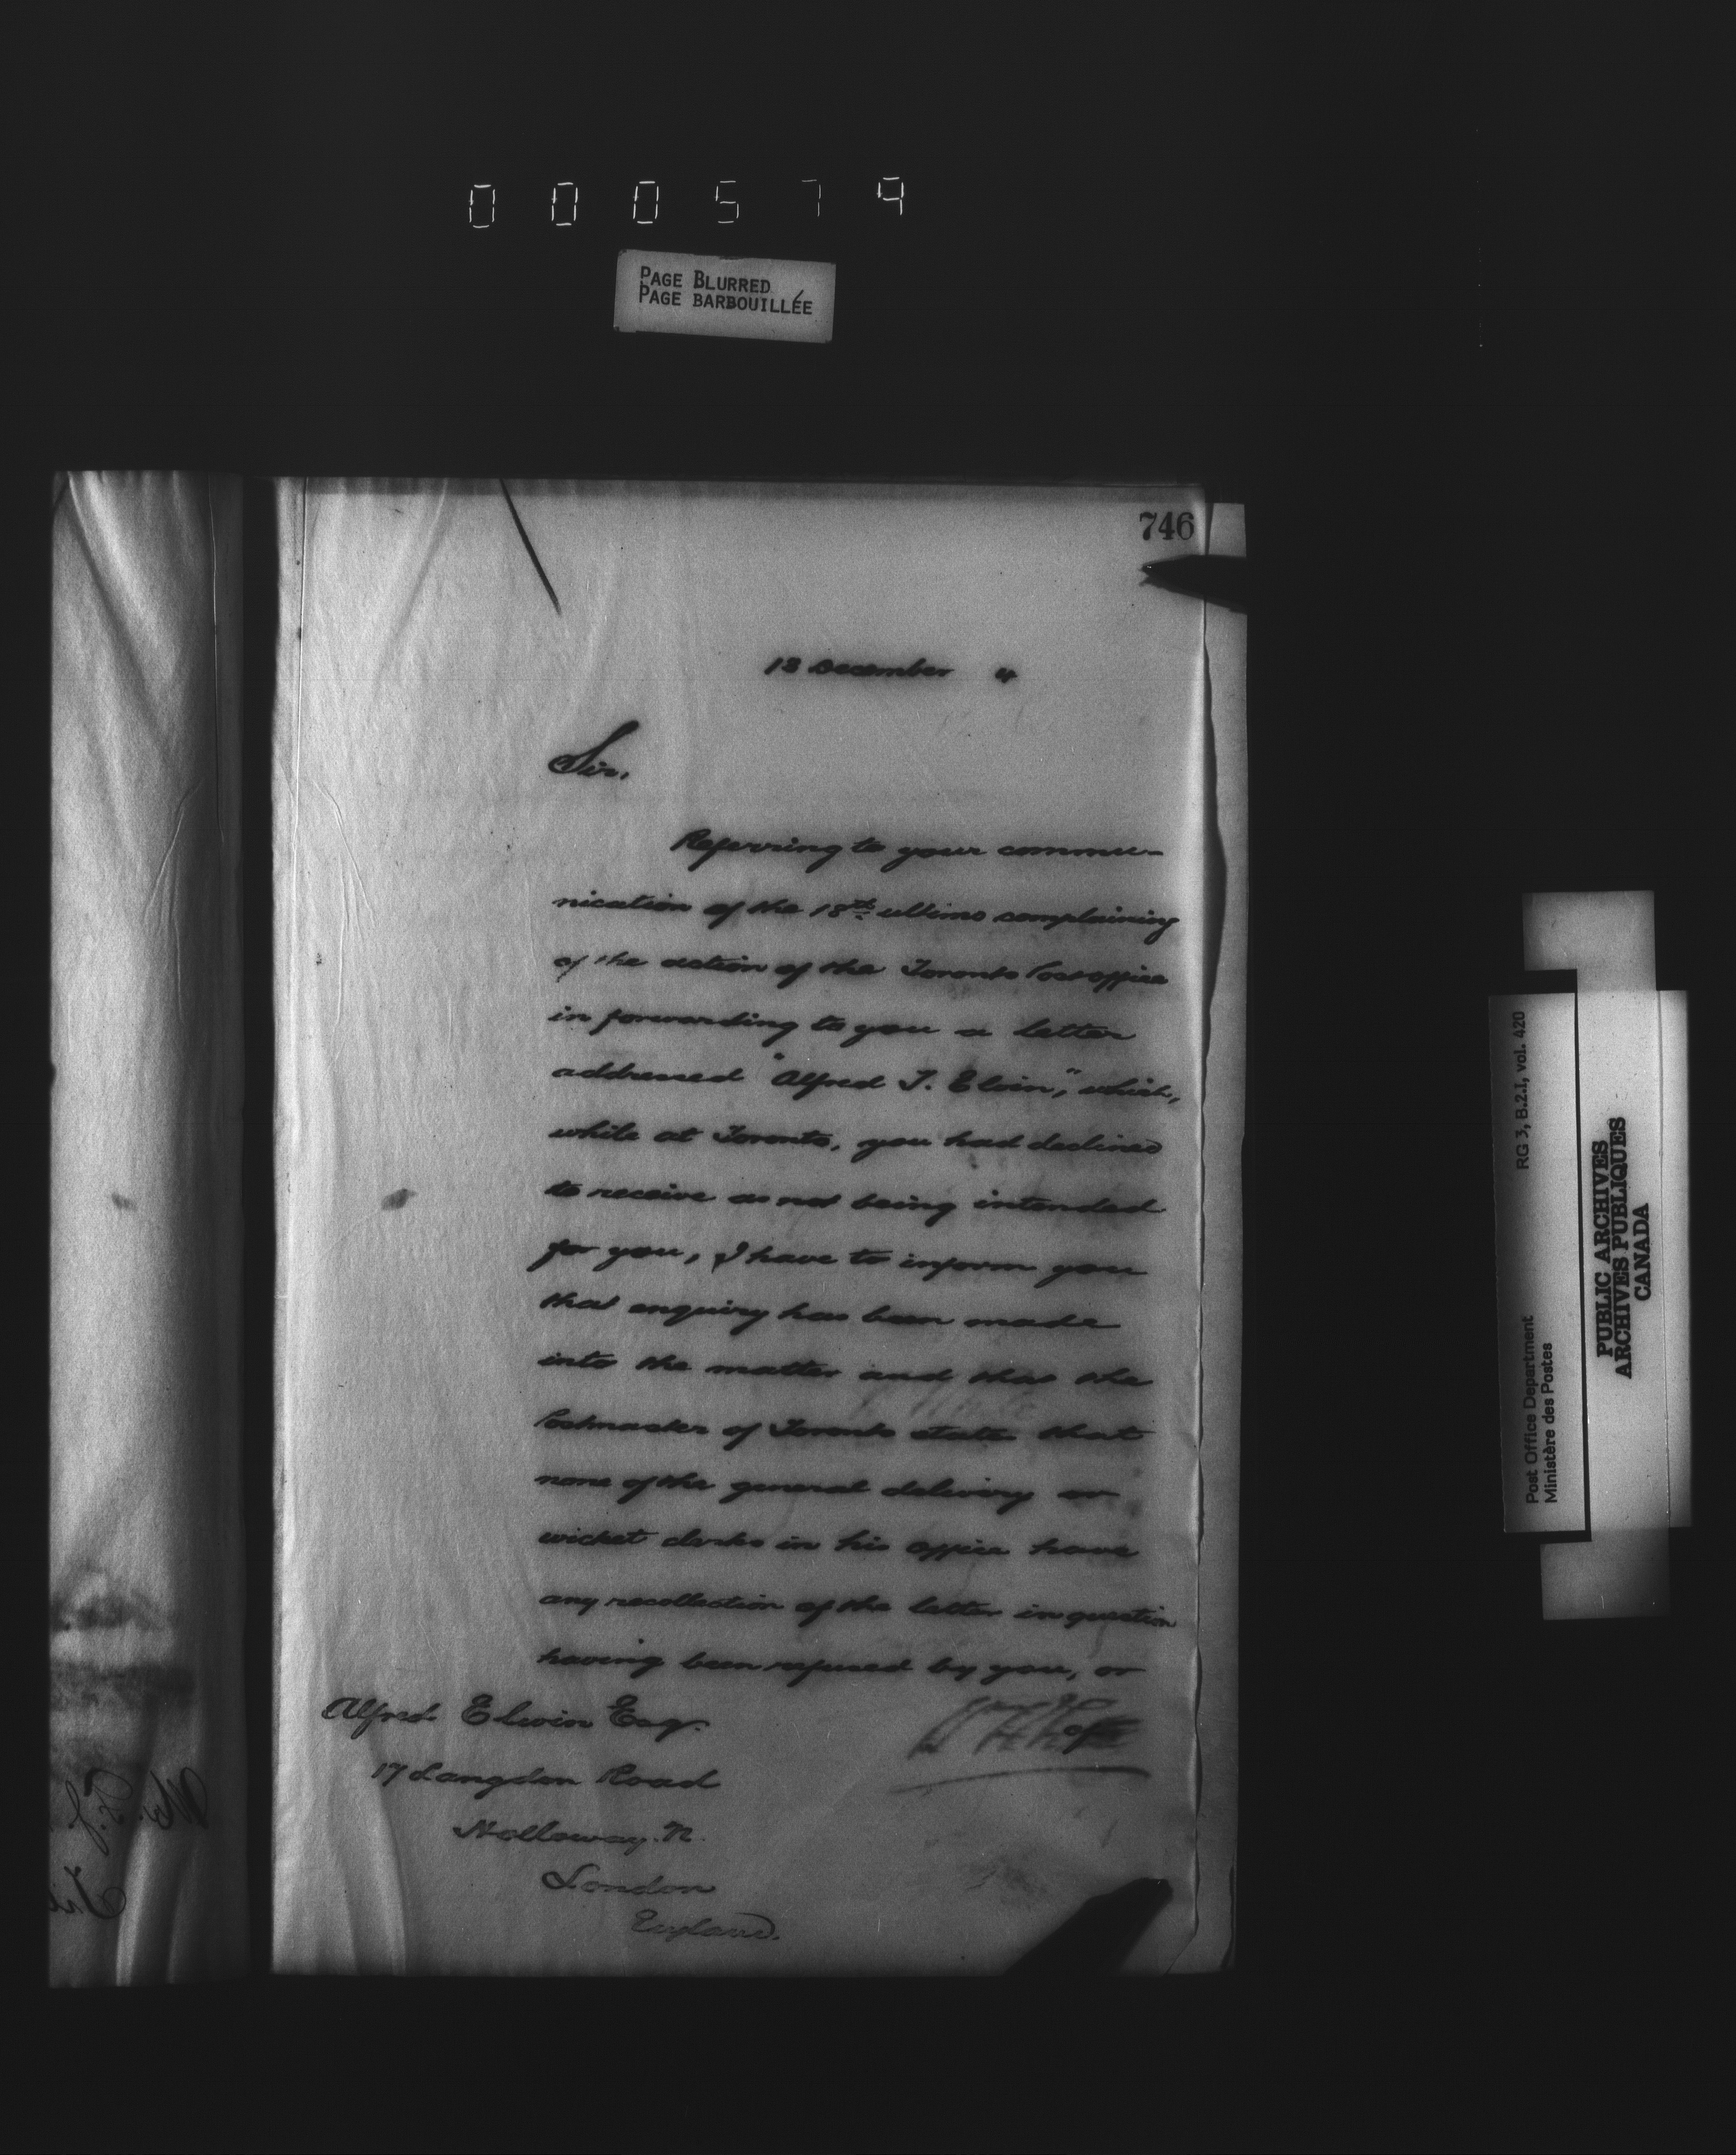 000579
PAGE BLURRED
PAGE BARBOUILLÉE
746
13 December 4
Sir,
Referring to your commu-
nication of the 18th ultimo complaining
of the action of the Toronto Post office
in forwarding to you a letter
addressed "Alfred J. Elvin," which,
while at Toronto, you had declined
to receive as not being intended
for you, I have to inform you
that enquiry has been made
into the matter and that the
Postmaster of Toronto states that
none of the general delivery or
wicket clerks in his office have
any recollection of the letter in question
having been refused by you, or
Alfred Elwin Esq.
17 Langdon Road
Holloway. N.
London
England.
Post Office Department RG 3, B.2.1, vol. 420
Ministère des Postes
PUBLIC ARCHIVES
ARCHIVES PUBLIQUES
CANADA